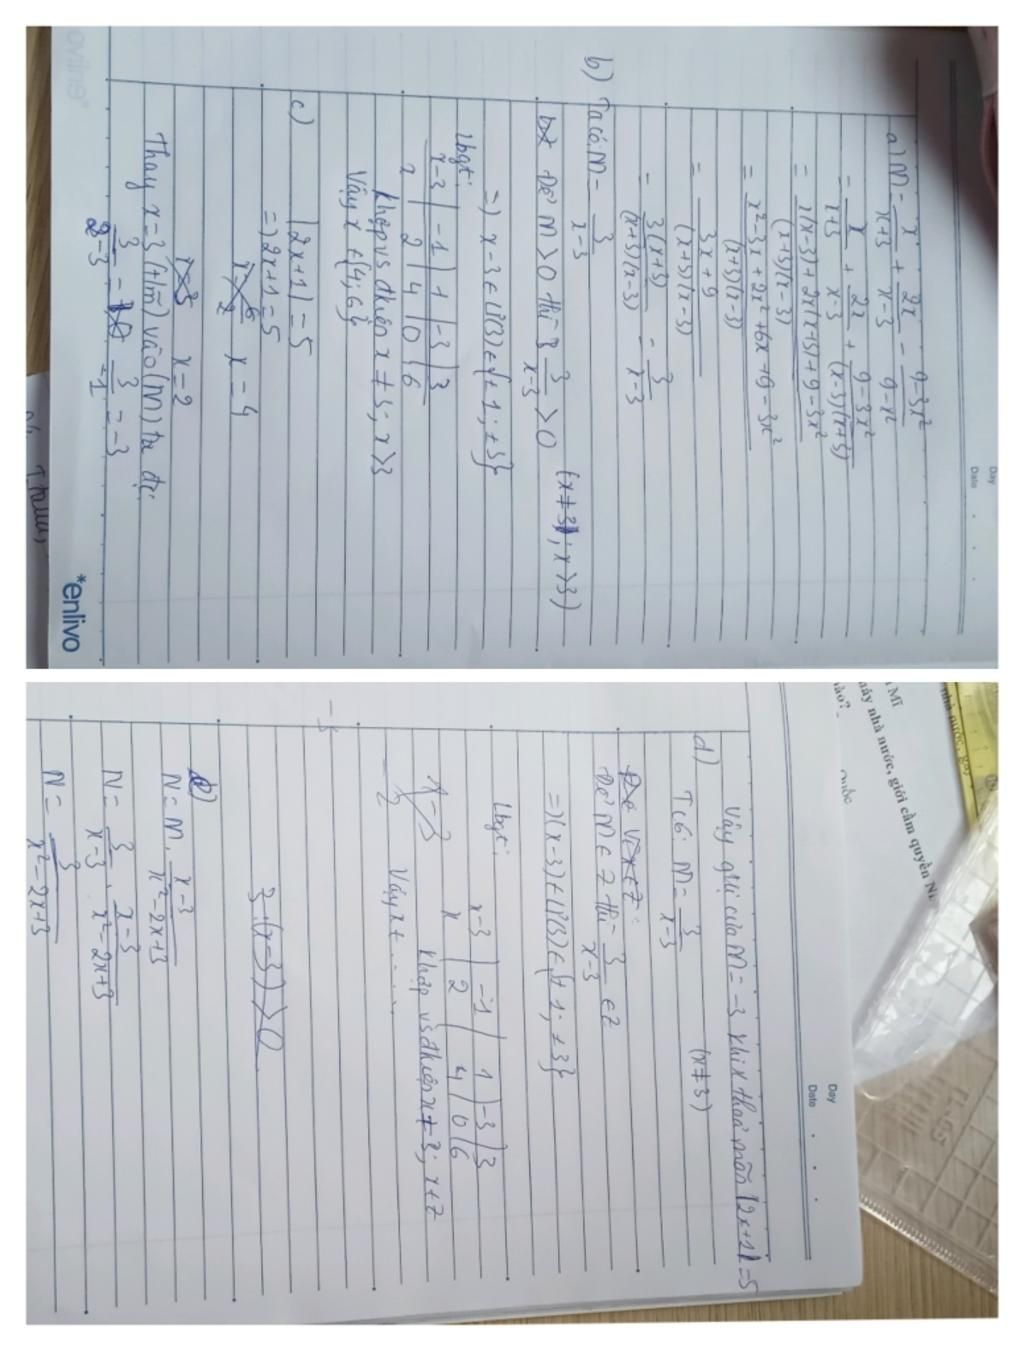 Day
Date
a) M = x/(x+3) + 2x/(x-3) - (9-3x²)/(9-x²)
= x/(x+3) + 2x/(x-3) + (9-3x²)/((x-3)(x+3))
= (x(x-3) + 2x(x+3) + 9-3x²)/((x+3)(x-3))
= (x²-3x+2x²+6x+9-3x²)/((x+3)(x-3))
= (3x+9)/((x+3)(x-3))
= 3(x+3)/((x+3)(x-3)) = 3/(x-3)
b) Ta có: M = 3/(x-3)
Để M > 0 thì 3/(x-3) > 0 (x≠3; x>3)
=) x-3 ∈ Ư(3) ∈ {±1; ±3}
Lbgt:
x-3 | -1 | 1 | -3 | 3
x | 2 | 4 | 0 | 6
Khớp vs đkiện x≠3; x>3
Vậy x ∈ {4; 6}
c) |2x+1| = 5
=) 2x+1 = 5
x = 4
x = 2
Thay x=3 (t/m) vào (M) ta đc:
3/(2-3) = 3/-1 = -3
*enlivo
Day
Date
Vậy gtrị của M = -3 khi x thoả mãn |2x+1| = 5
d)
Tcó: M = 3/(x-3) (x≠3)
Để Vì x∈Z:
Để M ∈ Z thì 3/(x-3) ∈ Z
=) (x-3) ∈ Ư(3) ∈ {±1; ±3}
Lbgt:
x-3 | -1 | 1 | -3 | 3
x | 2 | 4 | 0 | 6
Khớp vs đkiện x≠3; x∈Z
Vậy x ∈ .....
3:(x-3) > 0
N = M . (x-3)/(x²-2x+3)
N = 3/(x-3) . (x-3)/(x²-2x+3)
N = 3/(x²-2x+3)
máy nhà nước, giới cầm quyền